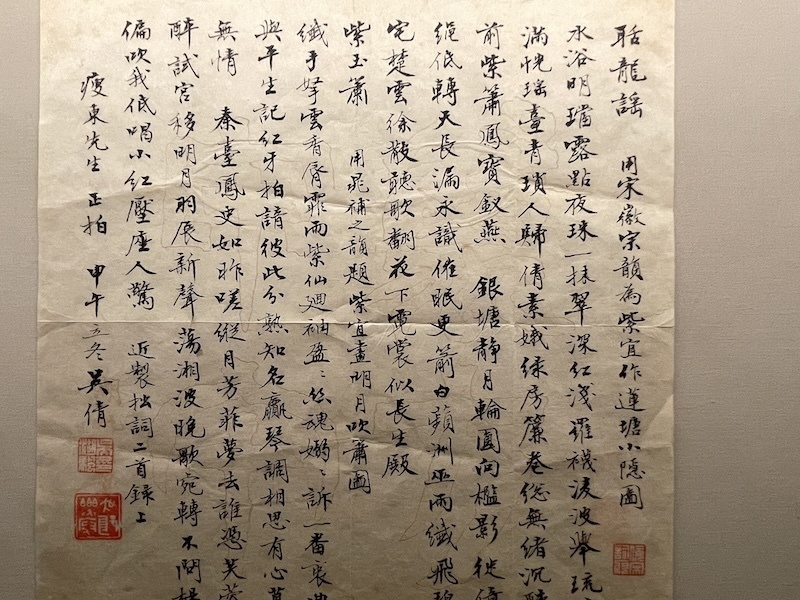 聒龍謠　用宋徽宗韻為紫宜作蓮塘小隱圖
水浴明璫露點夜珠一抹翠深紅淺羅襪淩波舉琉
滿恍瑤臺青瑣人歸倩素娥綠房簾卷總無緒沉醉
前紫簫鳳寶釵燕　銀塘靜月輪圓向檻影徙倚
繩低轉天長漏永識催眠更箭白蘋洲巫雨纖飛
宅楚雲徐散聽歌翻夜下霓裳似長生殿
紫玉簫　用晁補之韻題紫宜畫明月吹簫圖
纖手拏雲香脣霏雨紫仙迴袖盈盈絲魂嫋嫋訴一番衷
與平生記紅牙拍諳彼此分熟知名贏琴調相思有心莫
無情　秦臺鳳史如昨嗟縱月芳菲夢去誰憑芙蓉
醉試宮移明月羽展新聲蕩湘波晚歌宛轉不問
偏吹我低唱小紅壓座人驚　近製拙詞二首錄上
瘦東先生正拍　甲午立冬吳倩